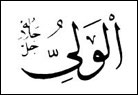 الْوَلِيُّ
جل جلاله